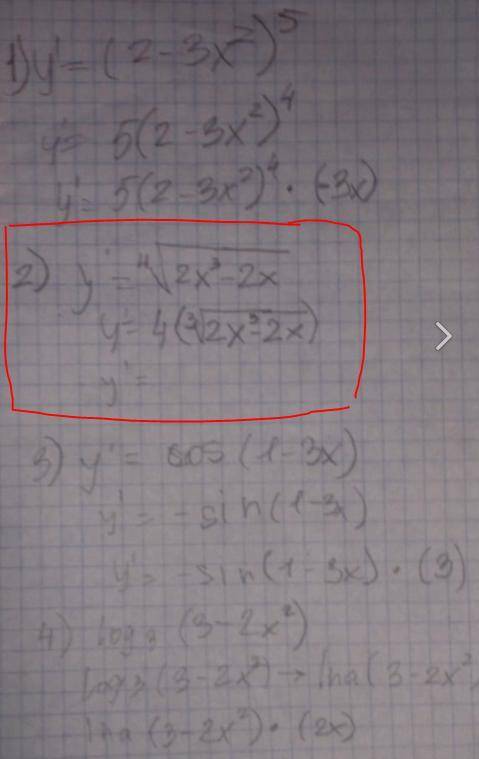 1) y' = (2-3x²)⁵
y' = 5(2-3x²)⁴
y' = 5(2-3x²)⁴ · (-3x)
2) y' = ⁴√(2x³-2x)
y' = 4(³√(2x³-2x))
y' =
3) y' = cos(1-3x)
y' = -sin(1-3x)
y' = -sin(1-3x) · (3)
4) log₃ (3-2x²)
log₃(3-2x²) → lna(3-2x²
lna (3-2x²) · (2x)